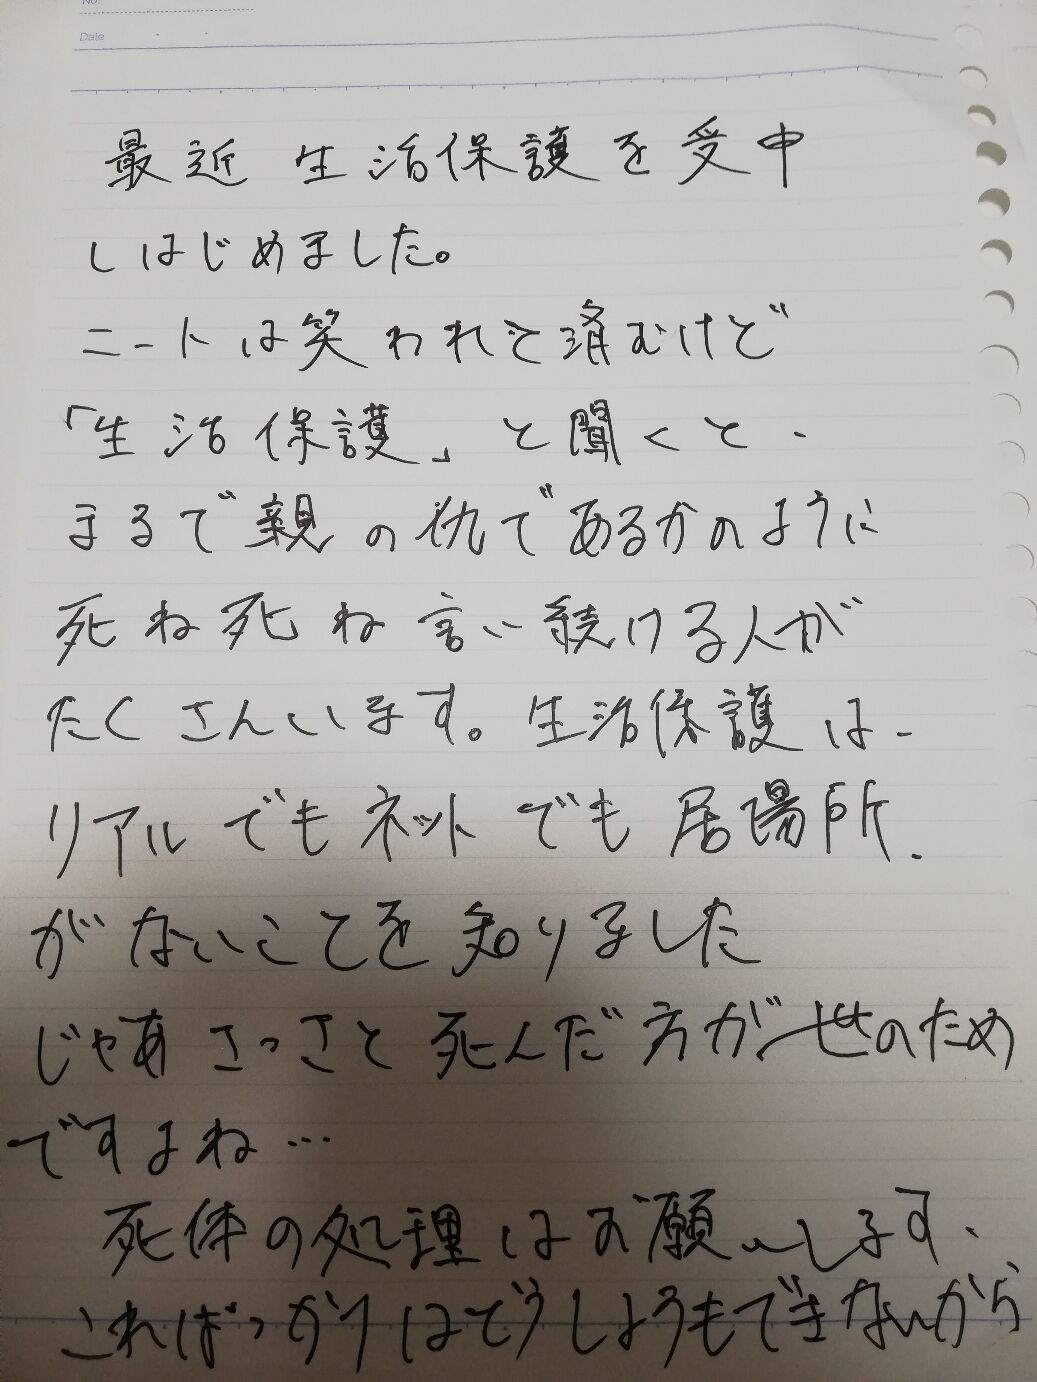 No.
Date
最近 生活保護を受中
しはじめました。
ニートは笑われて済むけど
「生活保護」と聞くと、
まるで親の仇であるかのように
死ね死ね言い続ける人が
たくさんいます。生活保護は、
リアルでもネットでも居場所、
がないことを知りました
じゃあさっさと死んだ方が世のため
ですよね…
死体の処理はお願いします、
こればっかりはどうしようもできないから